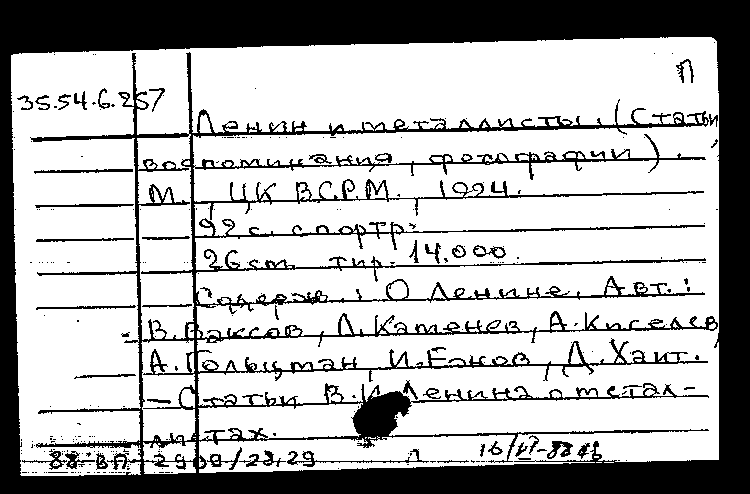 П
35.54.6.257
Ленин и металлисты. (Статьи,
воспоминания, фотографии).
М., ЦК ВСРМ., 1924.
92 с. с портр.
26 cm. тир. 14.000.
Содерж.: О Ленине. Авт.:
В. Ваксов, Л. Каменев, А. Киселев,
А. Гольцман, И. Ежов, Д. Хаит.
— Статьи В.И. Ленина о метал-
листах.
88-ВП-2909/28,29 Л 16/VI-88